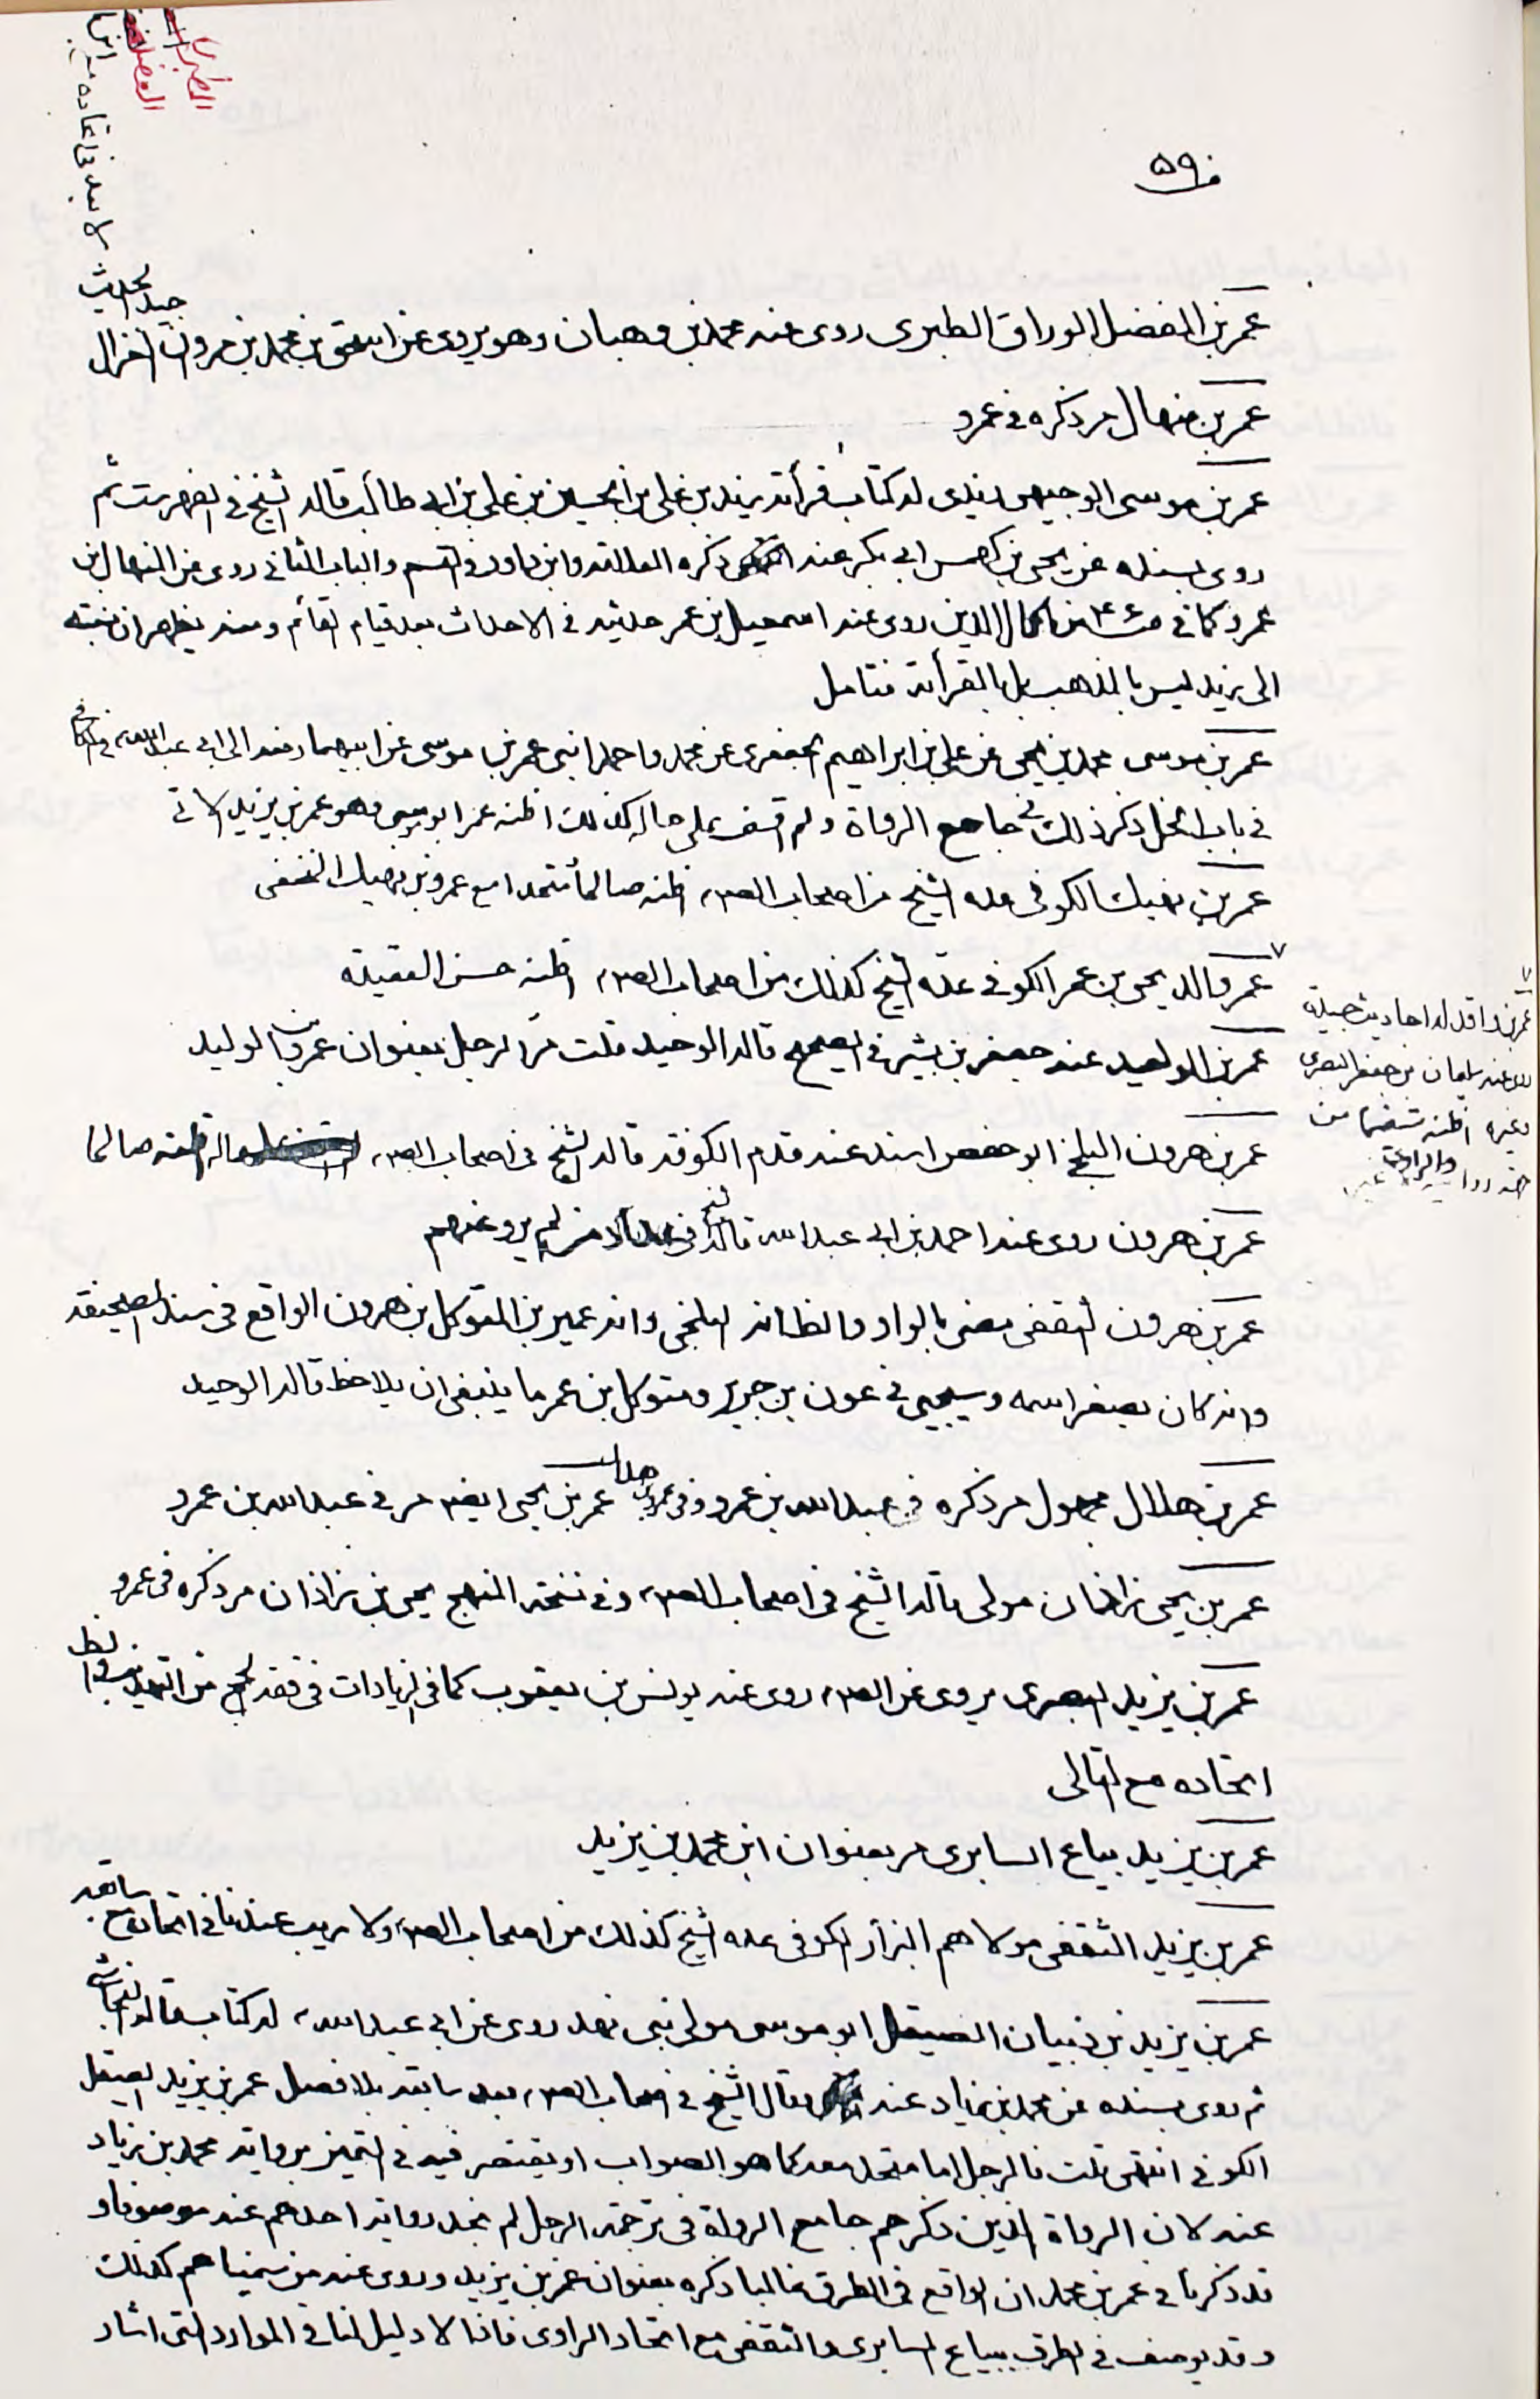 ص۵۹
عمر بن المفضل الوراق الطبرى روى عنه محمد بن وهبان وهو يروى عن اسحق بن محمد بن مروان الغزال
جيد الحديث
عمر بن منهال مر ذكره فى عمرو
عمر بن موسى الوجيهى زيدى له كتاب قرأة زيد بن على بن الحسين بن على بن ابى طالب قاله الشيخ فى الفهرست ثم
روى بسنده عن يحيى بن كهمس ابى بكر عنه ذكره العلامة وابن داود فى القسم والباب الثانى روى عن المنهال بن
عمرو كما فى من اكمال الدين روى عنه اسمعيل بن عمر حديثه فى الاحداث بعد قيام القائم ومنه يظهر ان نسبته
الى زيد ليس بالمذهب بل بالقرأة فتامل
عمر بن موسى محمد بن يحيى عن على بن ابراهيم الجعفرى عن محمد واحمد ابنى عمر بن موسى عن ابيهما رفعه الى ابى عبدالله ع فى الكافى
فى باب الخل ذكر ذلك فى جامع الرواة ولم اقف على حاله كذلك اظنه عمر ابو موسى وهو عمر بن يزيد الاتى
عمر بن نهيك الكوفى عده الشيخ من اصحاب الص، اظنه صالحا متحدا مع عمرو بن نهيك النخعى
عمر والد يحيى بن عمر الكوفى عده الشيخ كذلك من اصحاب الص، اظنه حسن العقيدة
عمر بن واقد له احاديث جيدة
روى عنه سليمان بن جعفر البصرى
وغيره اظنه شيعيا من
عمر بن الوليد عنه جعفر بن بشير فى الصحيح قاله الوحيد قلت مر الرجل بعنوان عمرو بن الوليد
عمر بن هرون البلخى ابو حفص اسند عنه قدم الكوفة قاله الشيخ فى اصحاب الص، اظنه صالحا
عمر بن هرون روى عنه احمد بن ابى عبدالله قاله الشيخ فى من لم يرو عنهم
عمر بن هرون الثقفى مضى بالواو والظانه البلخى وانه عمير بن المتوكل بن هرون الواقع فى سند الصحيفة
وانه كان يصغر اسمه وسيجيى فى عون بن جرير ومتوكل بن عمر ما ينبغى ان يلاحظ قاله الوحيد
عمر بن هلال مجهول مر ذكره فى عبدالله بن عمرو وفى عمرو بن هلال عمر بن يحيى ايضا مر فى عبدالله بن عمرو
عمر بن يحيى بن زاذان مولى قاله الشيخ فى اصحاب الص، وفى نسخة المنهج يحيى بن زاذان مر ذكره فى عمرو
عمر بن يزيد البصرى يروى عن الص، روى عنه يونس بن يعقوب كما فى الزيادات فى فقه الحج من التهذيب
اتحاده مع التالى
عمر بن يزيد بياع السابرى مر بعنوان ابن محمد بن يزيد
عمر بن يزيد الثقفى مولاهم البزاز الكوفى عده الشيخ كذلك من اصحاب الص، ولا ريب عندنا فى اتحاده مع سابقه
عمر بن يزيد بن ذبيان الصيقل ابو موسى مولى بنى نهد روى عن ابى عبدالله، له كتاب قاله النجاشى
ثم روى بسنده عن محمد بن زياد عنه وقال الشيخ فى اصحاب الص، بعد سابقه بلا فصل عمر بن يزيد الصيقل
الكوفى انتهى قلت فالرجل اما متحد معه كما هو الصواب او يقتصر فيه فى التميز برواية محمد بن زياد
عنه لان الرواة الذين ذكرهم جامع الرواة فى ترجمة الرجل لم نجد رواية احدهم عنه موصوفا و
قد ذكرنا فى عمر بن محمد ان الواقع فى الطرق غالبا ذكره بعنوان عمر بن يزيد وروى عنه من سميناهم كذلك
وقد يوصف فى الطرق ببياع السابرى والثقفى مع اتحاد الراوى فاذا لا دليل لنا فى الموارد التى اشار